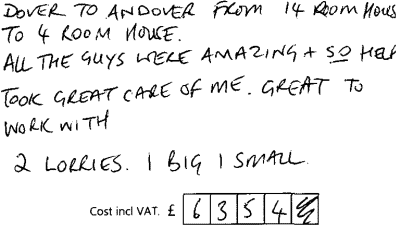 DOVER TO ANDOVER FROM 14 ROOM HOUS
TO 4 ROOM HOUSE.
ALL THE GUYS WERE AMAZING + SO HELP
TOOK GREAT CARE OF ME. GREAT TO
WORK WITH
2 LORRIES. 1 BIG 1 SMALL.
Cost incl VAT. £ 6 3 5 4